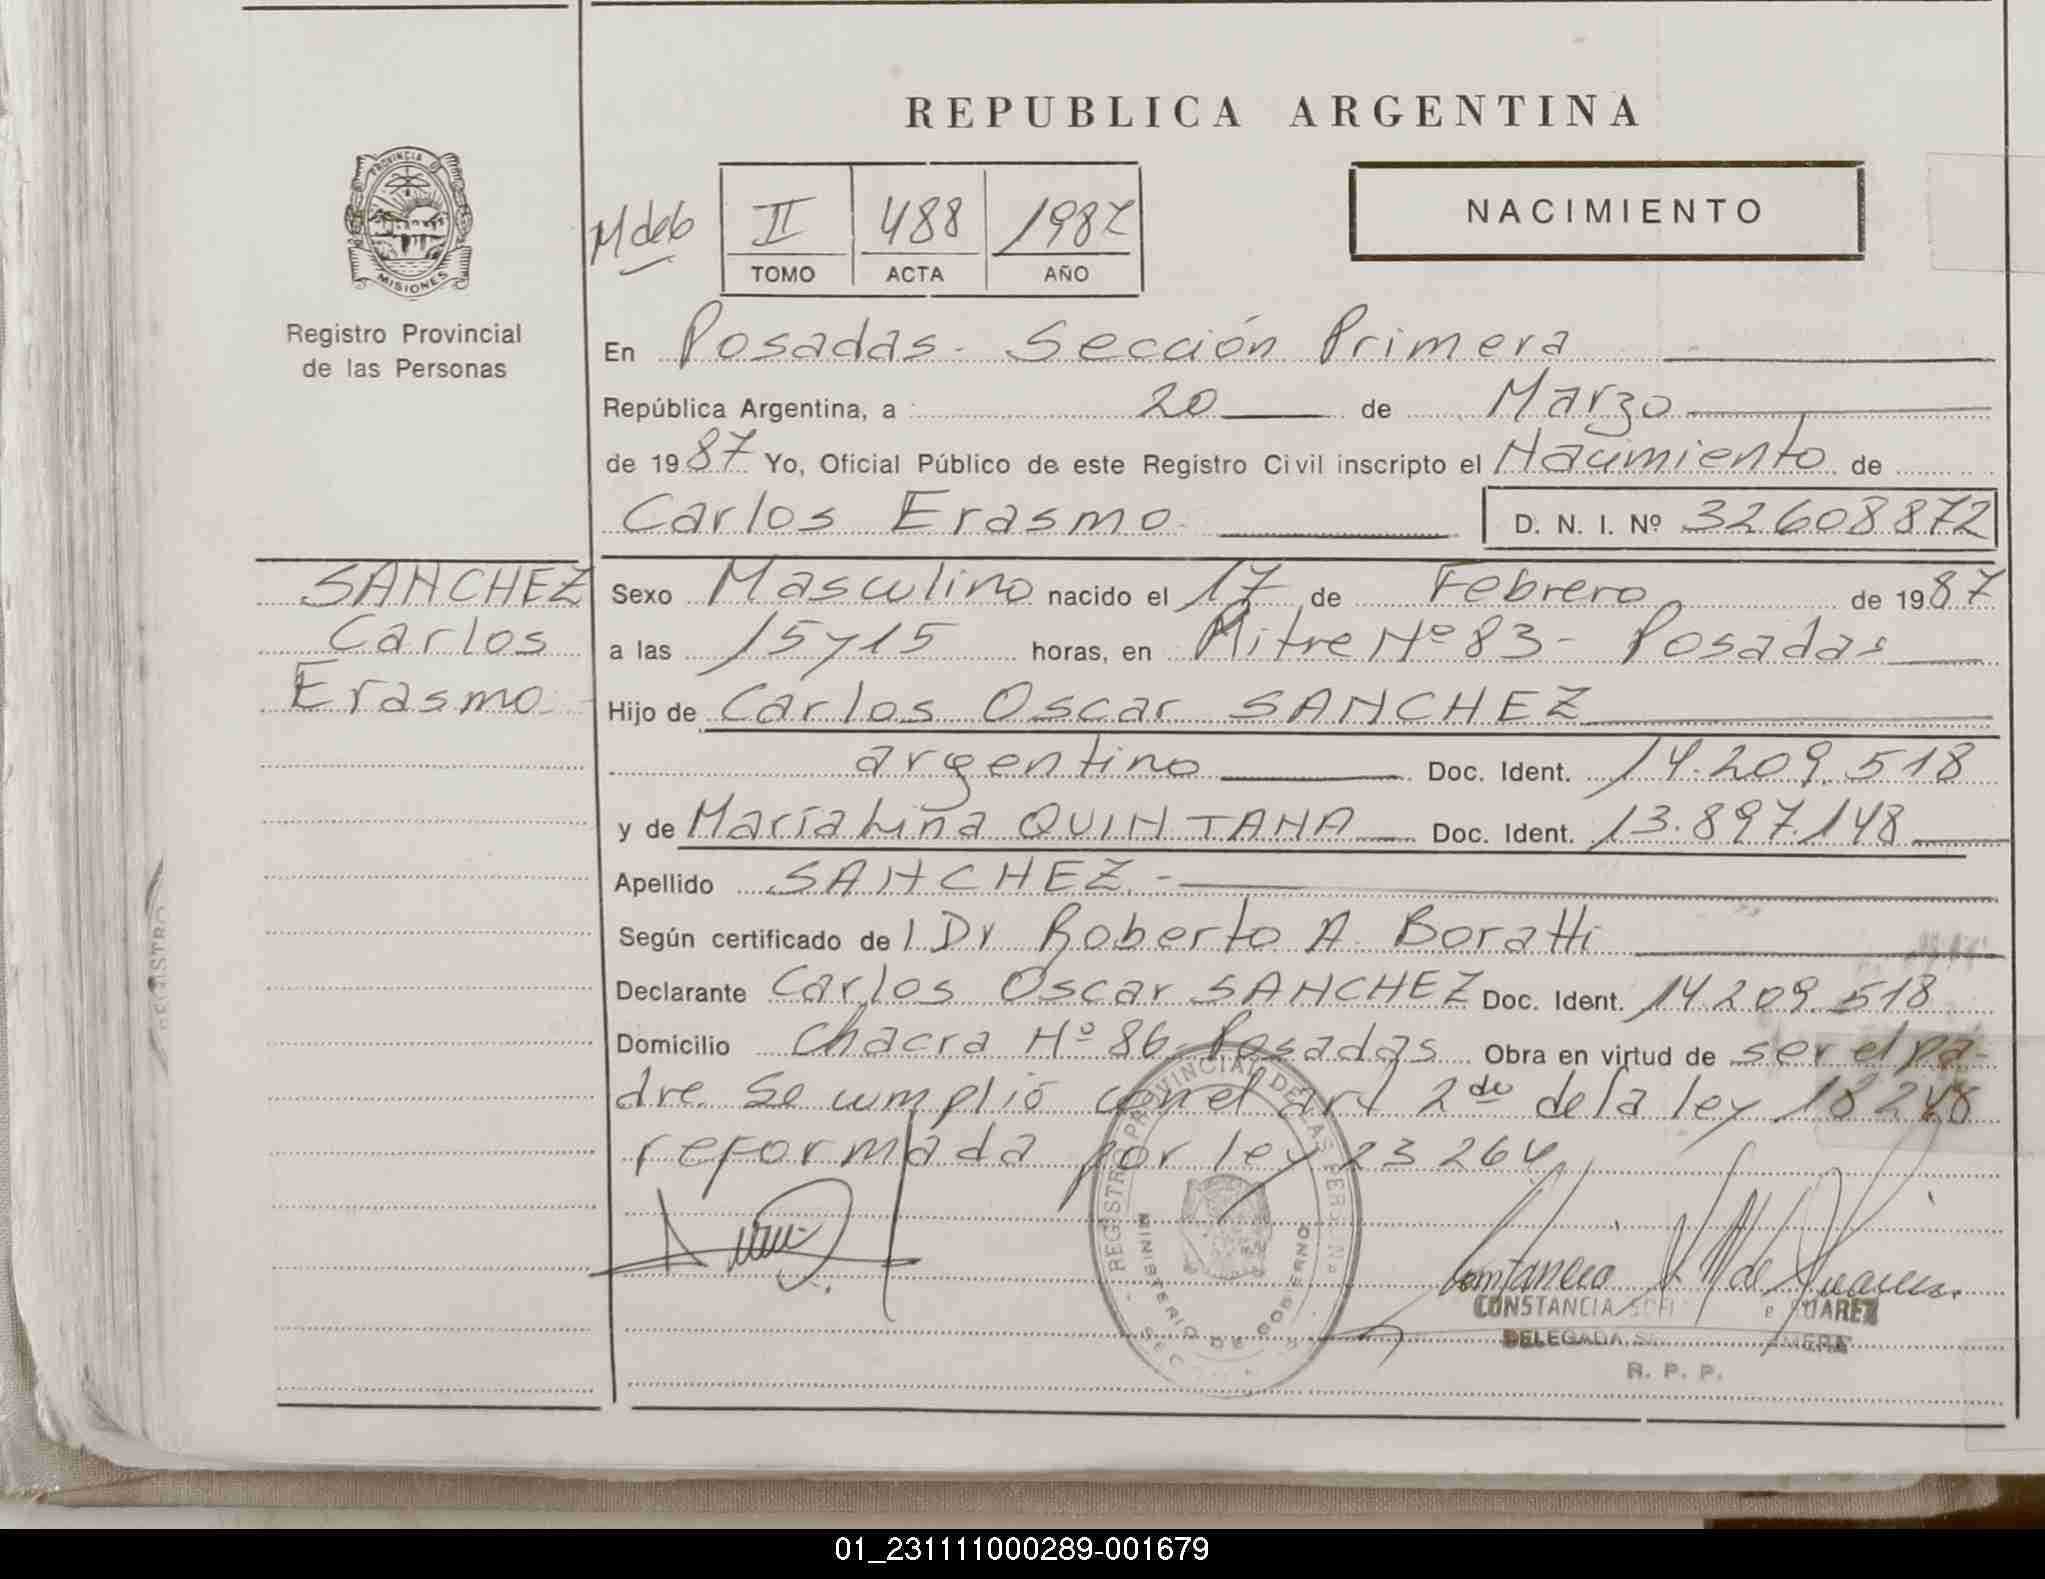 REPUBLICA ARGENTINA
PROVINCIA DE
MISIONES
Registro Provincial
de las Personas
II 488 1987
TOMO ACTA AÑO
NACIMIENTO
En Posadas - Sección Primera
República Argentina, a 20 de Marzo
de 1987 Yo, Oficial Público de este Registro Civil inscripto el Nacimiento de
Carlos Erasmo D. N. I. Nº 32608872
SANCHEZ
Carlos
Erasmo
Sexo Masculino nacido el 17 de Febrero de 1987
a las 15 y 15 horas, en Mitre Nº 83 - Posadas
Hijo de Carlos Oscar SANCHEZ
argentino Doc. Ident. 14.209.518
y de María Lina QUINTANA Doc. Ident. 13.897.148
Apellido SANCHEZ.-
Según certificado de l Dr Roberto A. Boratti
Declarante Carlos Oscar SANCHEZ Doc. Ident. 14.209.518
Domicilio Chacra Nº 86 - Posadas Obra en virtud de ser el pa-
dre. Se cumplió con el art 2do de la ley 18248
reformada por ley 23264
REGISTRO PROVINCIAL DE LAS PERSONAS
MINISTERIO DE GOBIERNO
CONSTANCIA SUAREZ
DELEGADA
R. P. P.
REGISTRO
01_231111000289-001679